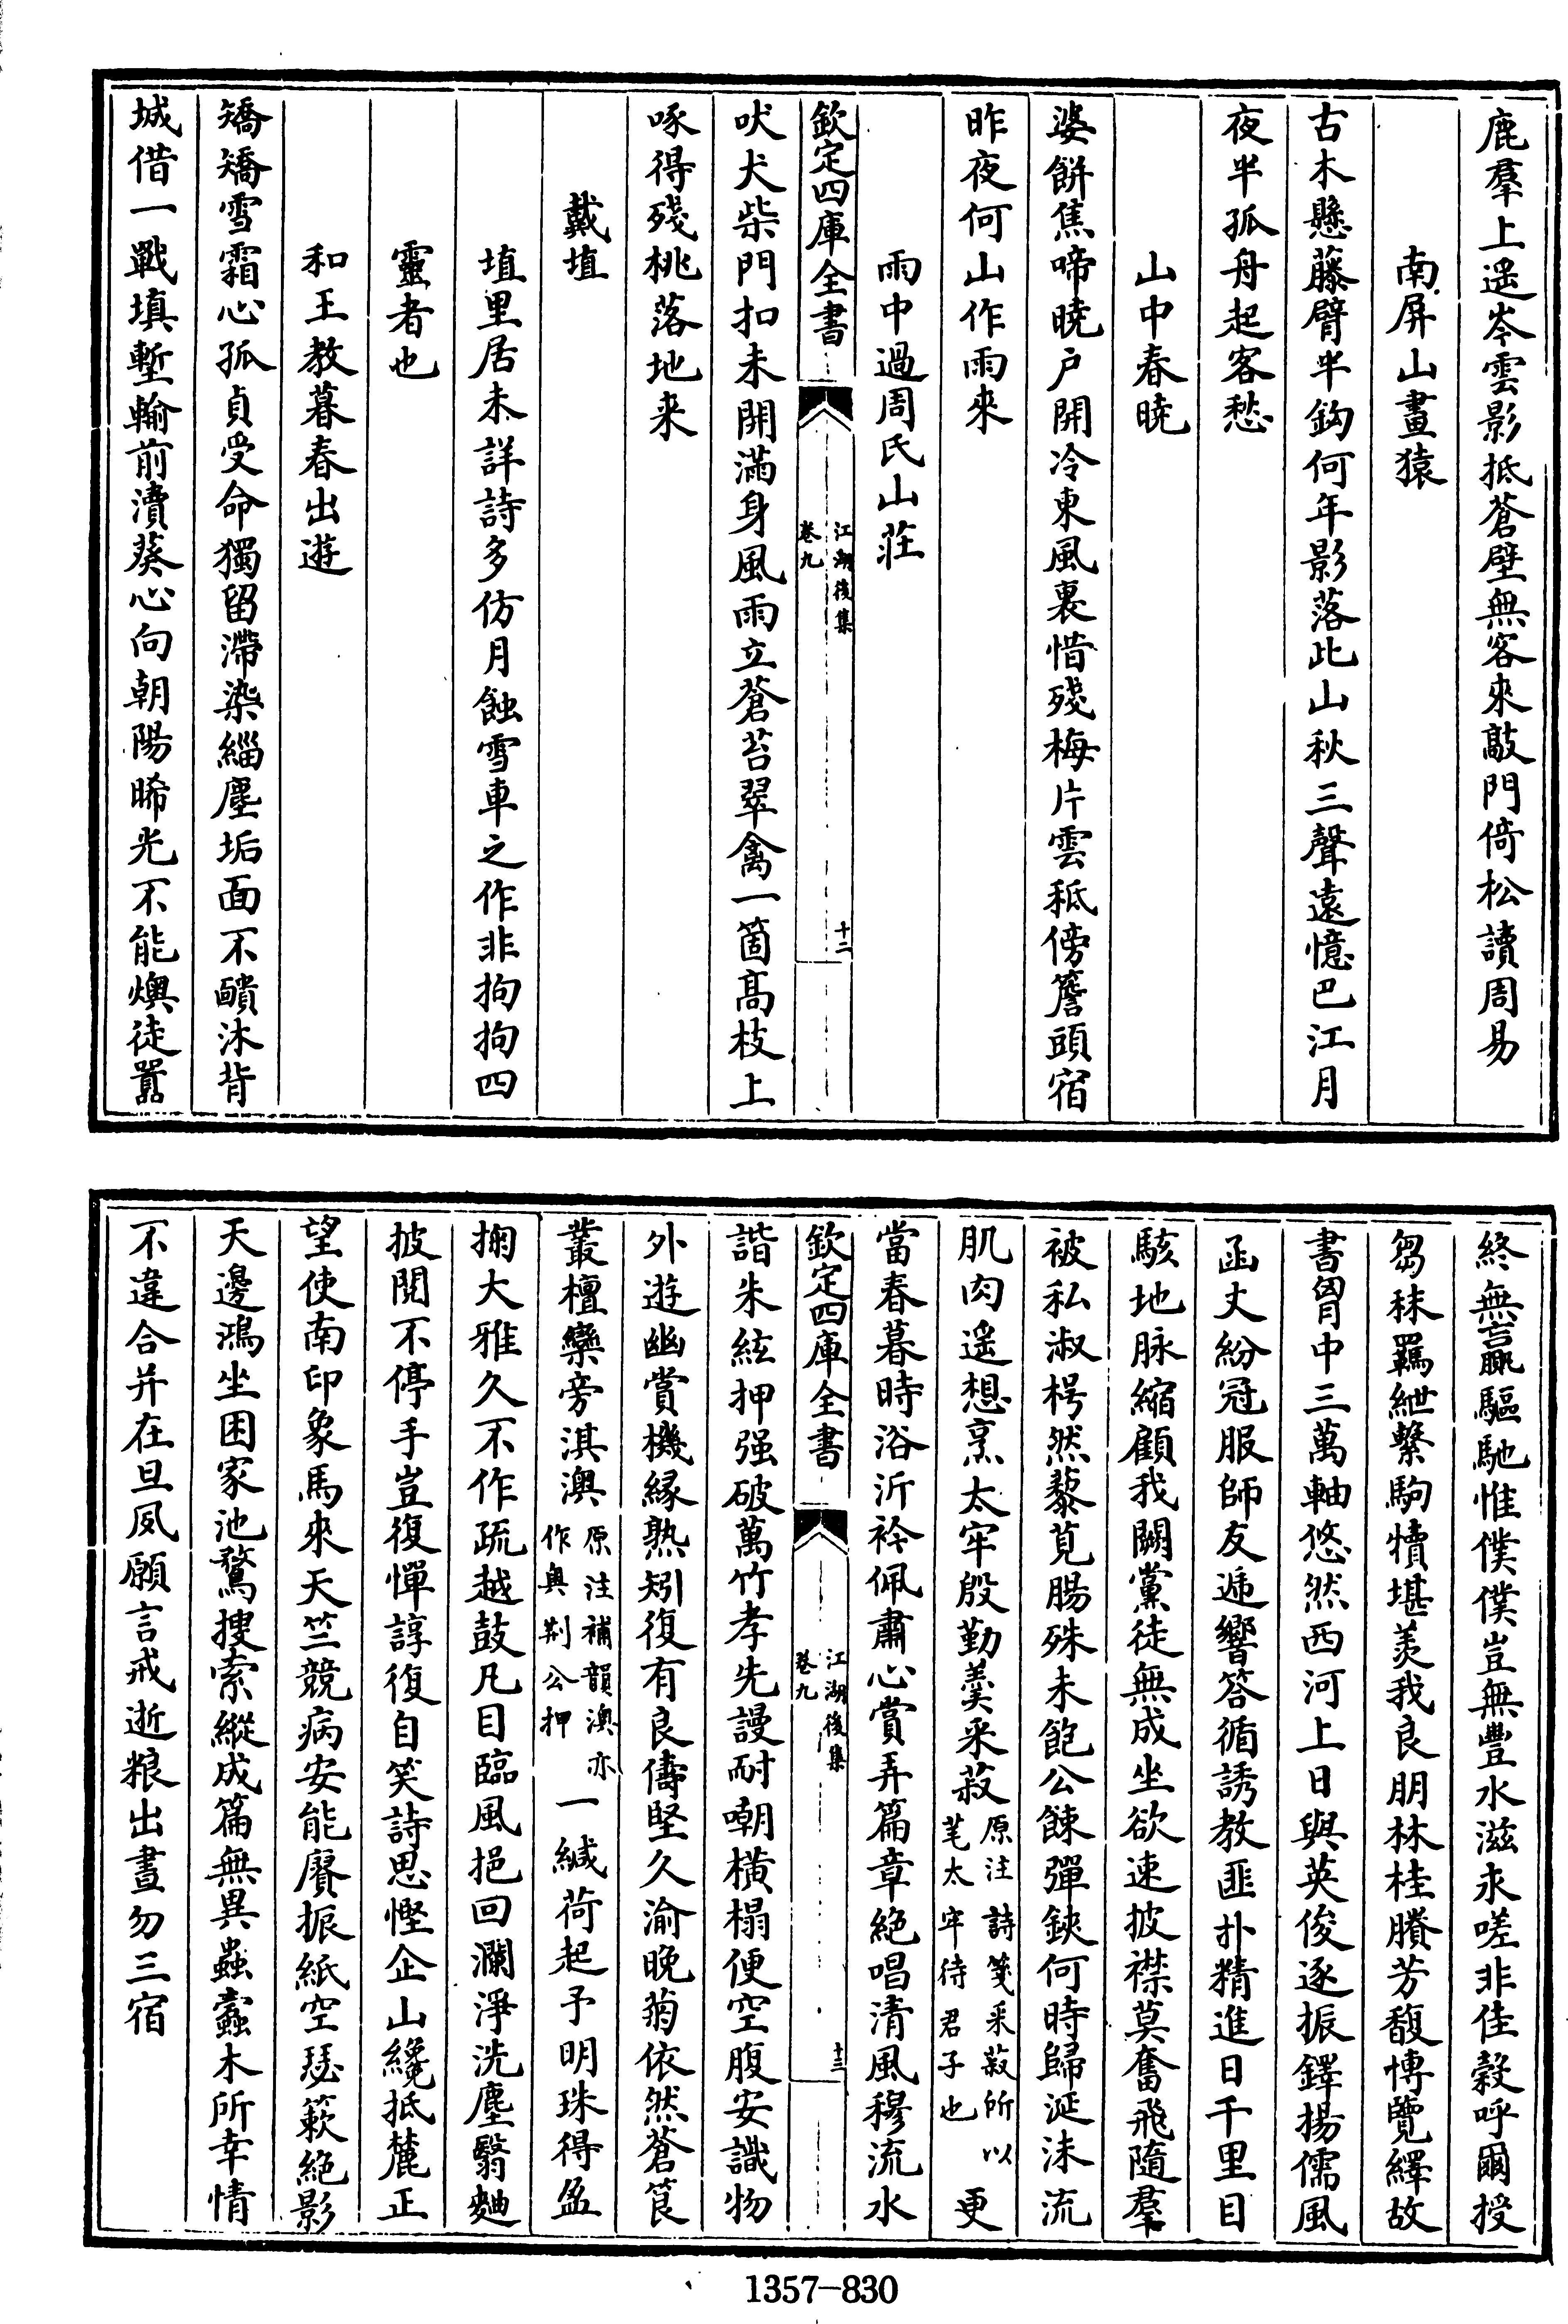 鹿羣上遥岑雲影抵蒼壁無客來敲門倚松讀周易
南屏山畫猿
古木懸藤臂半鈎何年影落此山秋三聲遠憶巴江月
夜半孤舟起客愁
山中春曉
婆餅焦啼曉戶開冷東風裏惜殘梅片雲秪傍簷頭宿
昨夜何山作雨來
雨中過周氏山莊
欽定四庫全書
江湖後集
卷九
十二
吠犬柴門扣未開滿身風雨立蒼苔翠禽一箇高枝上
啄得殘桃落地来
戴埴
埴里居未詳詩多仿月蝕雪車之作非拘拘四
靈者也
和王教暮春出遊
矯矯雪霜心孤貞受命獨留滯染緇塵垢面不靧沐背
城借一戰填塹輸前瀆葵心向朝陽晞光不能燠徒囂
終無贏驅馳惟僕僕豈無豐水滋永嗟非佳穀呼爾授
芻秣羈紲繫駒犢堪羨我良朋林桂賸芳馥博覽繹故
書胷中三萬軸悠然西河上日與英俊逐振鐸揚儒風
函丈紛冠服師友遞響答循誘教匪扑精進日千里目
駭地脉縮顧我闕黨徒無成坐欲速披襟莫奮飛隨羣
被私淑枵然藜莧腸殊未飽公餗彈鋏何時歸涎沫流
肌肉遥想烹太牢殷勤羹采菽原注詩箋采菽所以芼太牢待君子也更
當春暮時浴沂衿佩肅心賞弄篇章絕唱清風穆流水
欽定四庫全書
江湖後集
卷九
十三
諧朱絃押强破萬竹孝先謾耐嘲橫榻便空腹安識物
外遊幽賞機縁熟矧復有良儔堅久渝晚菊依然蒼筤
叢檀欒旁淇澳原注補韻澳亦作奧荆公押一緘荷起予明珠得盈
掬大雅久不作疏越鼓凡目臨風挹回瀾淨洗塵翳麯
披閱不停手豈復憚諄復自笑詩思慳企山纔抵麓正
望使南印象馬來天竺競病安能賡振紙空瑟簌絕影
天邊鴻坐困家池鶩搜索縱成篇無異蟲蠹木所幸情
不違合并在旦夙願言戒逝粮出晝勿三宿
1357—830